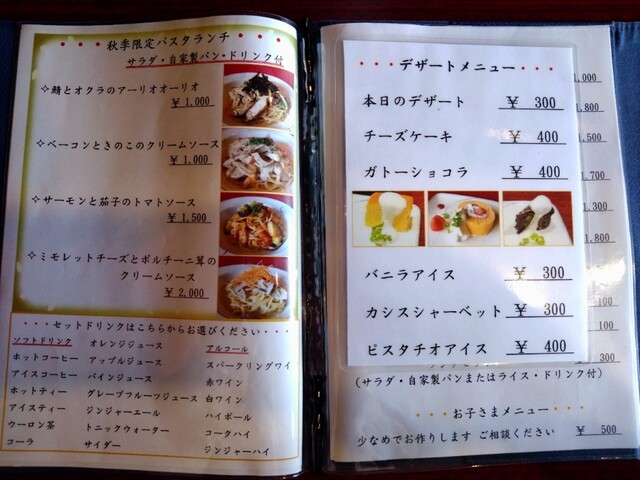 ・・・秋季限定パスタランチ・・・
サラダ・自家製パン・ドリンク付
✧鯖とオクラのアーリオオーリオ
￥1,000
✧ベーコンときのこのクリームソース
￥1,000
✧サーモンと茄子のトマトソース
￥1,500
✧ミモレットチーズとポルチーニ茸の
クリームソース
￥2,000
・・・セットドリンクはこちらからお選びください・・・
ソフトドリンク オレンジジュース アルコール
ホットコーヒー アップルジュース スパークリングワイ
アイスコーヒー パインジュース 赤ワイン
ホットティー グレープフルーツジュース 白ワイン
アイスティー ジンジャーエール ハイボール
ウーロン茶 トニックウォーター コークハイ
コーラ サイダー ジンジャーハイ
・・・デザートメニュー・・・
本日のデザート ￥ 300
チーズケーキ ￥ 400
ガトーショコラ ￥ 400
バニラアイス ￥ 300
カシスシャーベット ￥ 300
ピスタチオアイス ￥ 400
1,000
1,800
1,500
1,700
1,300
1,800
100
300
(サラダ・自家製パンまたはライス・ドリンク付)
・・・お子さまメニュー・・・
少なめでお作りします ご相談ください ￥ 500